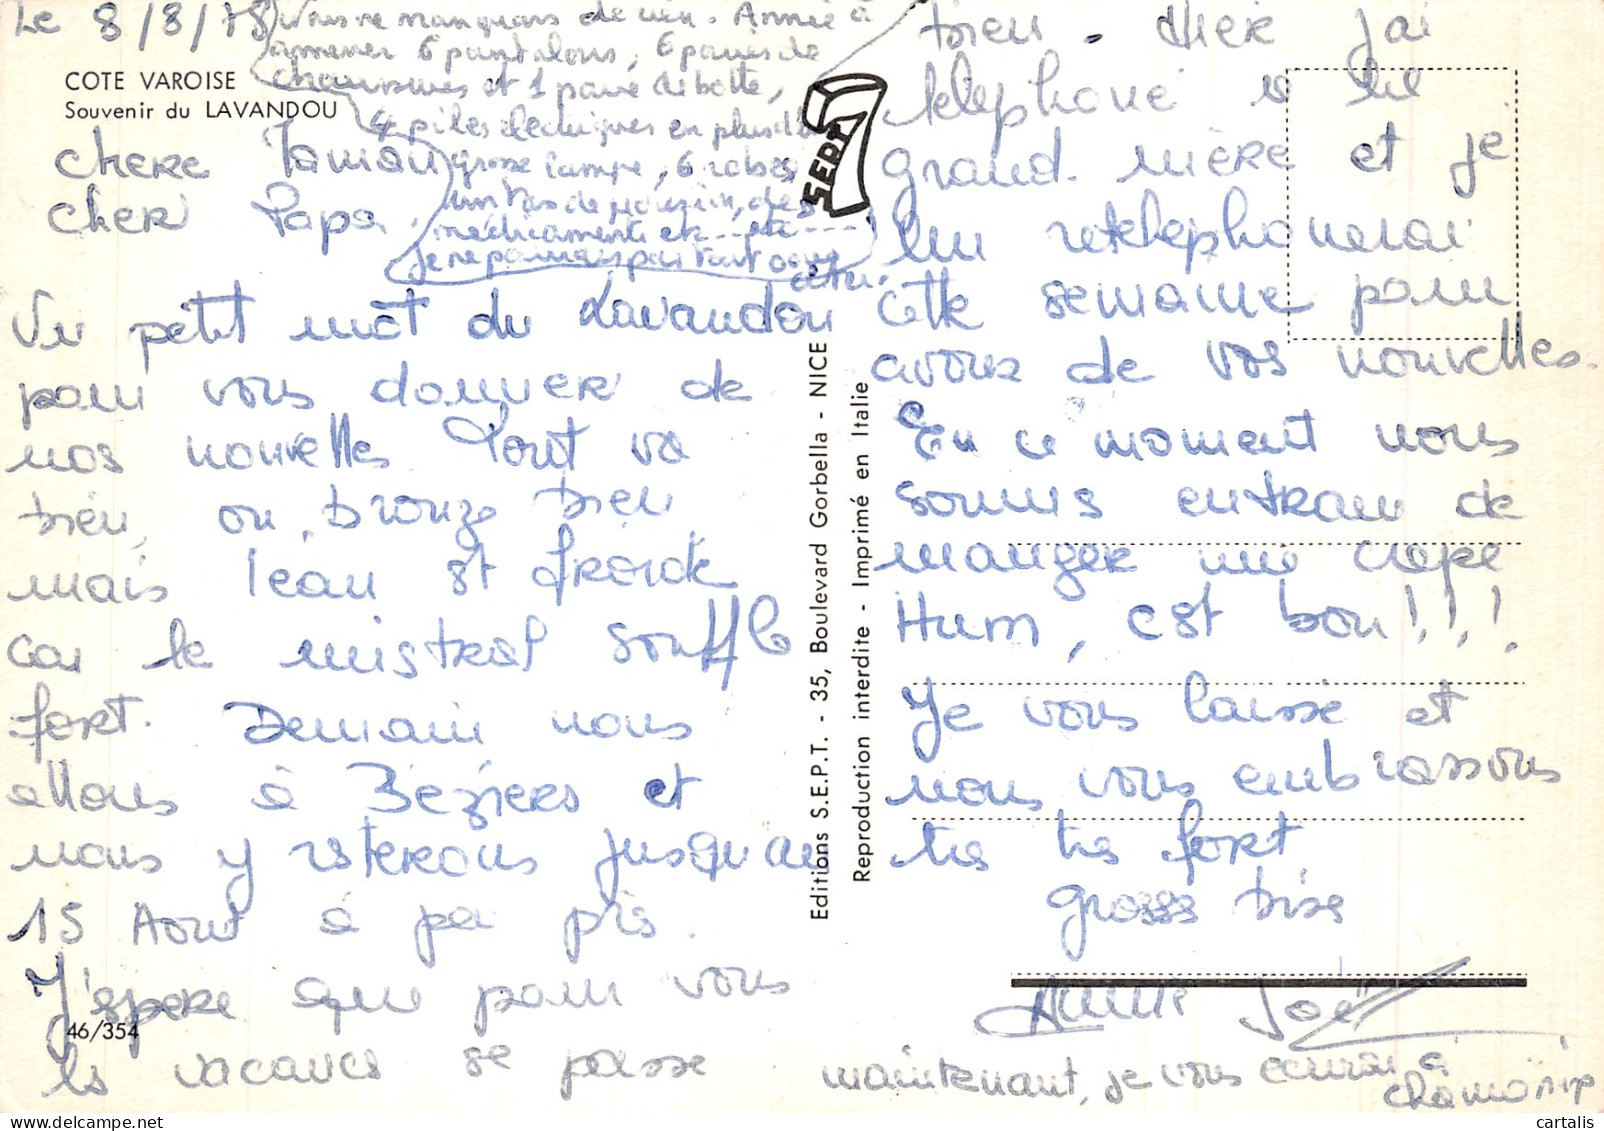 Le 8/8/78
COTE VAROISE
Souvenir du LAVANDOU
Nous ne manquons de rien. Annie a
amener 6 pantalons, 6 paires de
chaussures et 1 paire de botte,
4 piles electriques en plus d'la
grosse lampe, 6 robes
de
médicaments etc...etc...
Je ne pourrais pas tout vous
citer.
chere Maman
cher Papa
Un petit mot du Lavandou
pour vous donner de
nos nouvelles Tout va
bien, on bronze bien
mais l'eau est froide
car le mistral souffle
fort. Demain nous
allons à Béziers et
nous y resterons jusqu'au
15 Aout à peu près.
J'espère que pour vous
les vacances se passe
bien. Hier j'ai
téléphoné à
grand-mère et je
lui retelephonerai
cette semaine pour
avoir de vos nouvelles.
En ce moment nous
sommes entrain de
manger une crêpe
Hum, c'est bon!!!
Je vous laisse et
nous vous embrassons
très très fort
grosses bises
Annie Joë
maintenant, je vous écrirai à
chamonix
SEPT 7
Editions S.E.P.T. - 35, Boulevard Gorbella - NICE
Reproduction interdite - Imprimé en Italie
46/354
www.cartalis.com